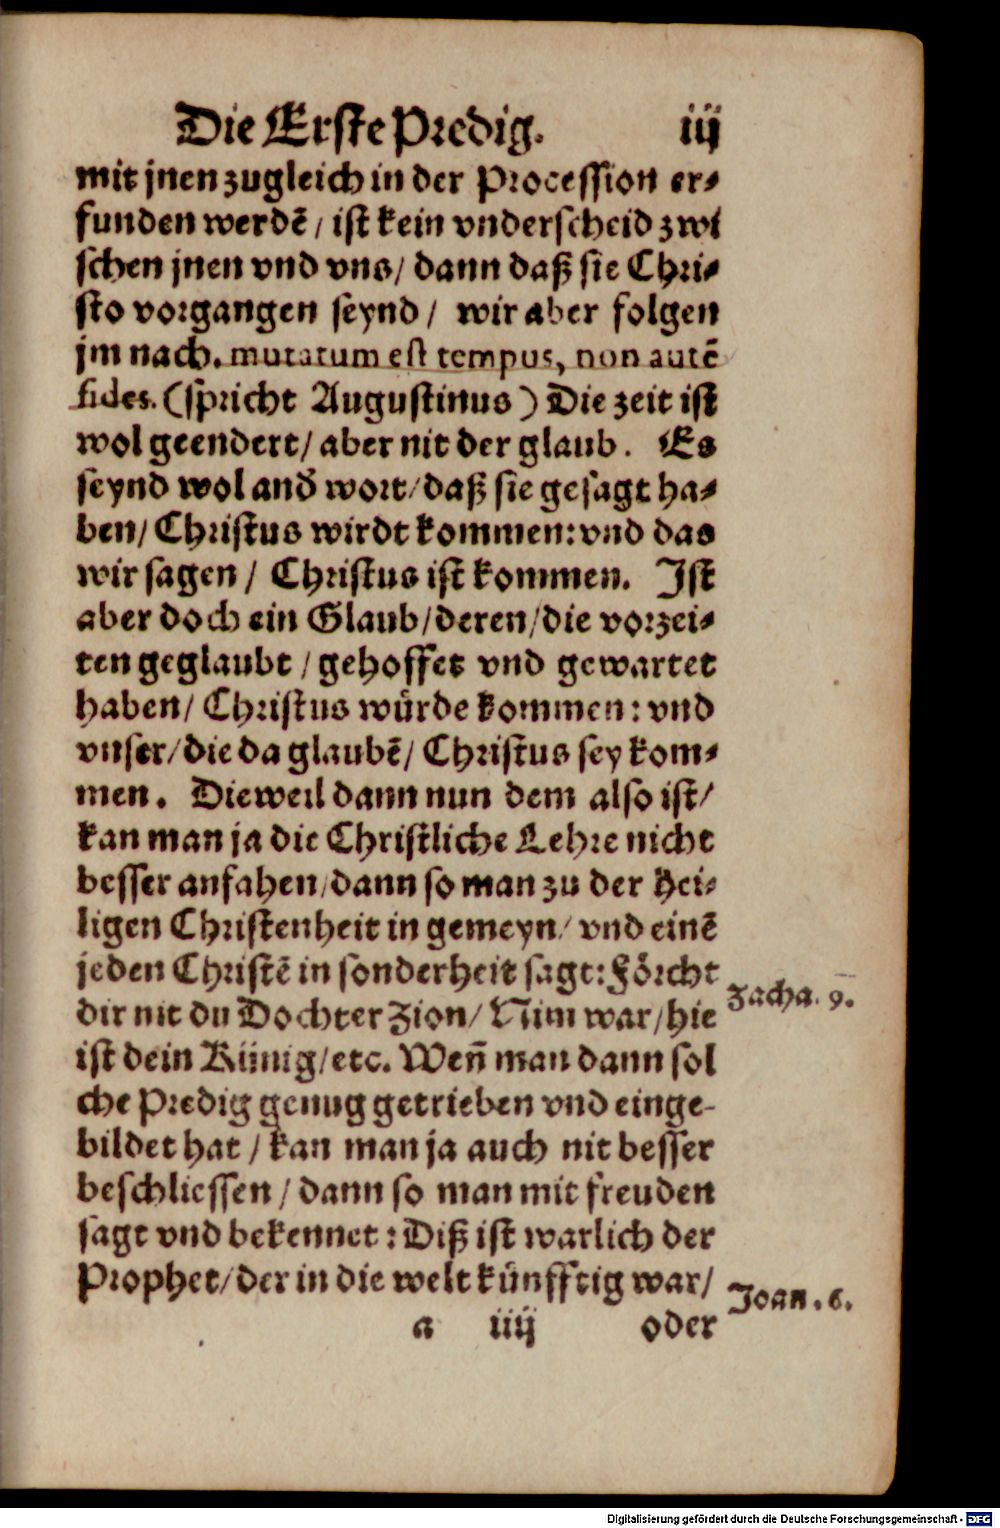 Die Erste Predig. iij
mit jnen zugleich in der Procession er-
funden werdē / ist kein vnderscheid zwi
schen jnen vnd vns / dann daß sie Chri-
sto vorgangen seynd / wir aber folgen
jm nach. mutatum est tempus, non autē
fides. (spricht Augustinus) Die zeit ist
wol geendert / aber nit der glaub. Es
seynd wol and̕ wort / daß sie gesagt ha-
ben / Christus wirdt kommen: vnd das
wir sagen / Christus ist kommen. Ist
aber doch ein Glaub / deren / die vorzei-
ten geglaubt / gehoffet vnd gewartet
haben / Christus würde kommen: vnd
vnser / die da glaubē / Christus sey kom-
men. Dieweil dann nun dem also ist /
kan man ja die Christliche Lehre nicht
besser anfahen / dann so man zu der Hei-
ligen Christenheit in gemeyn / vnd einē
jeden Christē in sonderheit sagt: Förcht
Zacha. 9.
dir nit du Dochter Zion / Nim war / hie
ist dein Künig / etc. Weñ man dann sol
che Predig genug getrieben vnd einge-
bildet hat / kan man ja auch nit besser
beschliessen / dann so man mit freuden
sagt vnd bekennet: Diß ist warlich der
Prophet / der in die welt künfftig war /
Joan. 6.
a iiij oder
Digitalisierung gefördert durch die Deutsche Forschungsgemeinschaft - DFG